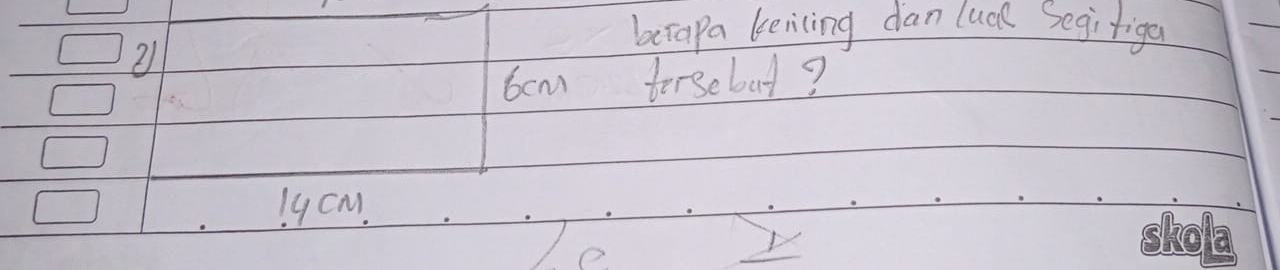 2)
berapa keliling dan luas Segitiga
6cm tersebut ?
14 cm
skola